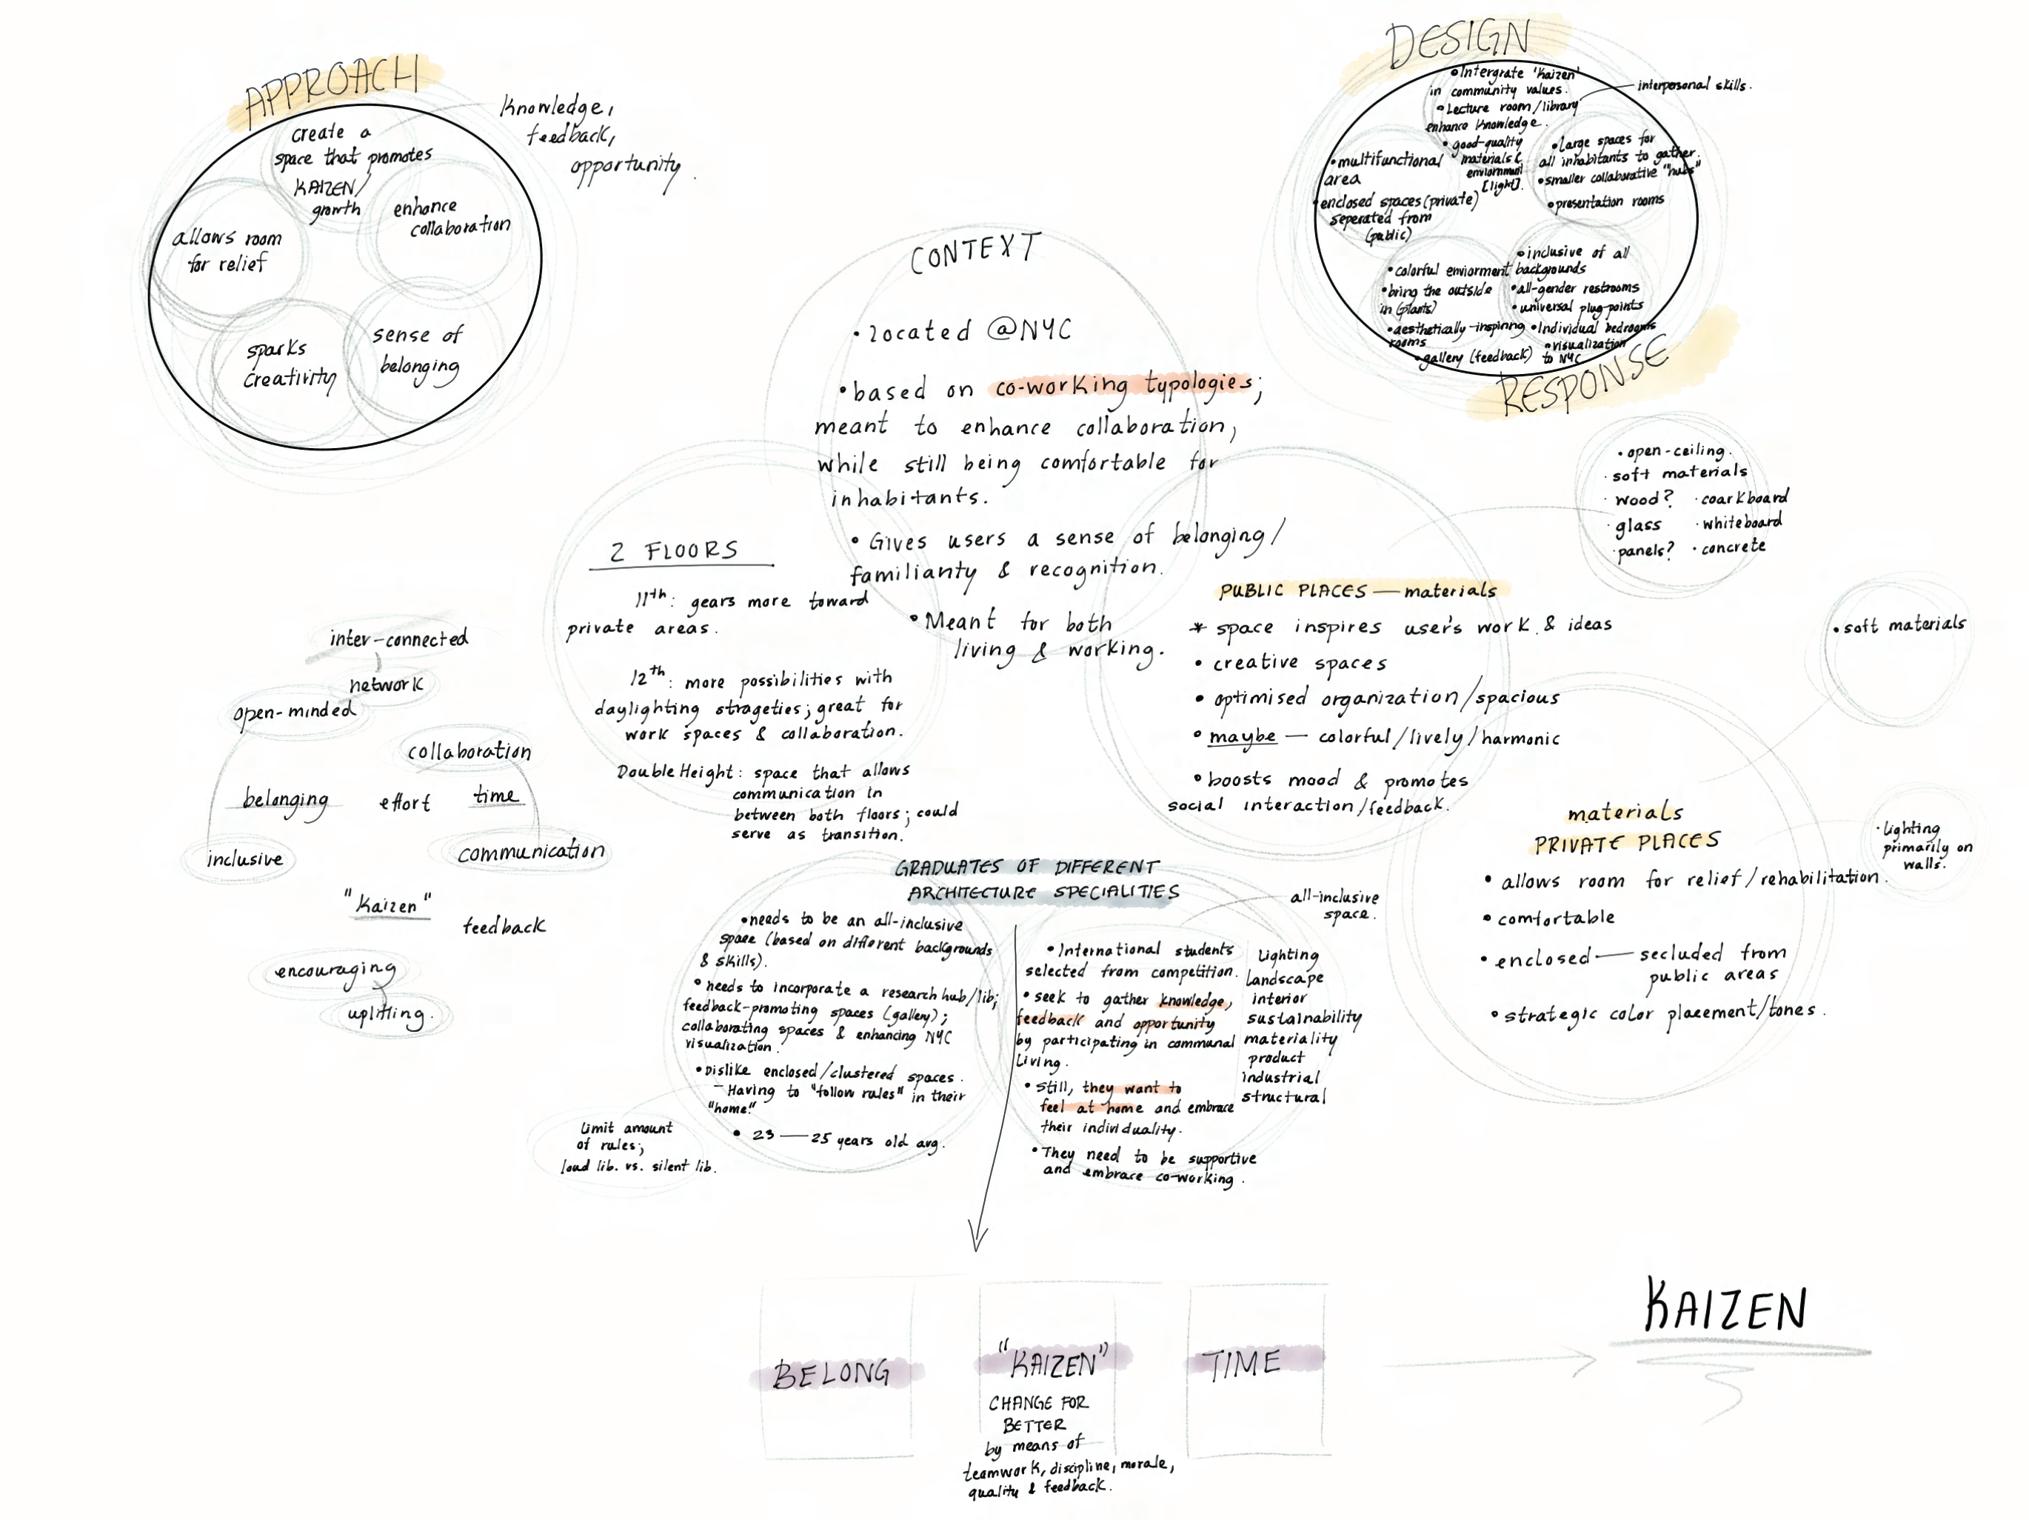 APPROACH
create a
space that promotes
KAIZEN/
growth
Knowledge,
feedback,
opportunity.
enhance
collaboration
allows room
for relief
sparks
creativity
sense of
belonging
DESIGN
•Intergrate 'Kaizen'
in community values.
•Lecture room/library
enhance knowledge.
interpersonal skills.
•good-quality
materials &
enviornment
[light].
•multifunctional
area
•enclosed spaces (private)
seperated from
(public)
•Large spaces for
all inhabitants to gather.
•smaller collaborative "hubs"
•presentation rooms
•colorful enviorment
•bring the outside
in (plants)
•aesthetically-inspiring
rooms
•gallery (feedback)
•inclusive of all
backgrounds
•all-gender restrooms
•universal plug-points
•Individual bedrooms
•visualization
to NYC
RESPONSE
CONTEXT
•located @NYC
•based on co-working typologies;
meant to enhance collaboration,
while still being comfortable for
inhabitants.
•Gives users a sense of belonging/
familiarity & recognition.
•Meant for both
living & working.
2 FLOORS
11th: gears more toward
private areas.
12th: more possibilities with
daylighting strageties; great for
work spaces & collaboration.
Double Height: space that allows
communication in
between both floors; could
serve as transition.
•open-ceiling.
·soft materials
·wood? ·coarkboard
·glass ·whiteboard
·panels? ·concrete
PUBLIC PLACES — materials
* space inspires user's work & ideas
• creative spaces
• optimised organization/spacious
• maybe — colorful/lively/harmonic
•boosts mood & promotes
social interaction/feedback.
•soft materials
materials
PRIVATE PLACES
• allows room for relief/rehabilitation.
•comfortable
•enclosed — secluded from
public areas
•strategic color placement/tones.
·lighting
primarily on
walls.
inter-connected
network
open-minded
collaboration
belonging effort time
inclusive
communication
"Kaizen"
feedback
encouraging
uplifting.
GRADUATES OF DIFFERENT
ARCHITECTURE SPECIALITIES
•needs to be an all-inclusive
space (based on different backgrounds
& skills).
•needs to incorporate a research hub/lib;
feedback-promoting spaces (gallery);
collaborating spaces & enhancing NYC
visualization.
•Dislike enclosed/clustered spaces.
— Having to "follow rules" in their
"home!"
• 23 — 25 years old avg.
Limit amount
of rules;
loud lib. vs. silent lib.
all-inclusive
space.
•International students
selected from competition.
•seek to gather knowledge,
feedback and opportunity
by participating in communal
living.
•Still, they want to
feel at home and embrace
their individuality.
•They need to be supportive
and embrace co-working.
Lighting
landscape
interior
sustainability
materiality
product
industrial
structural
BELONG
"KAIZEN"
CHANGE FOR
BETTER
by means of
teamwork, discipline, morale,
quality & feedback.
TIME
KAIZEN